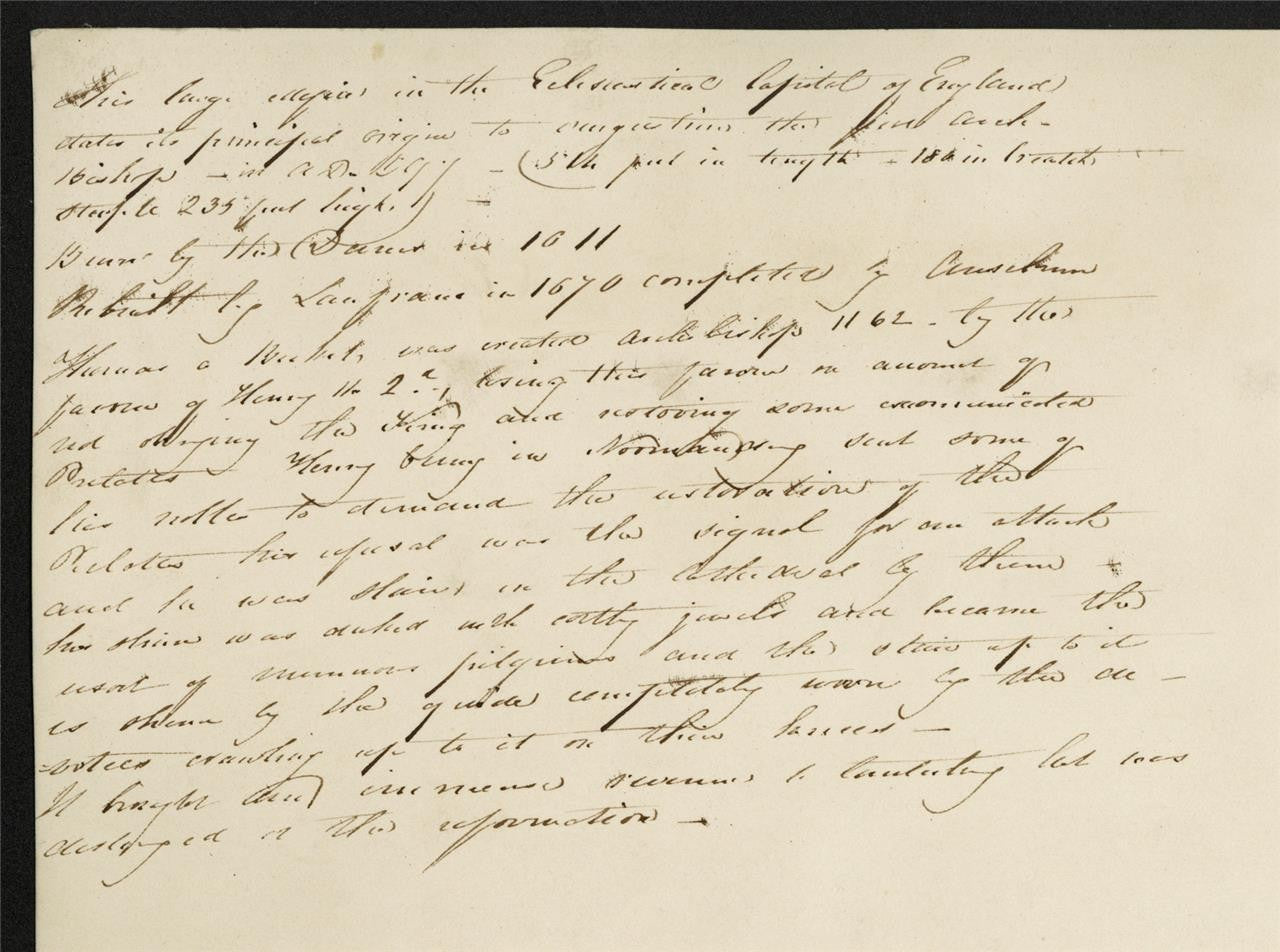 This large edifice in the Eclesiastical Capital of England
dates its principal origine to augustine the first Arch-
Bishop - in A.D. 597 - (514 feet in length - 180 in breadth
Steeple 235 feet high.) -
Burnt by the Danes in 1011
Rebuilt by Lanfranc in 1070 completed by Anselm
Thomas a Becket, was created archbishop 1162 - by the
favour of Henry the 2d, losing this favour on account of
not obeying the King and restoring some excomunicated
Prelates Henry being in Normandy sent some of
his nobles to demand the restoration of the
Prelates his refusal was the signal for an attack
and he was slain in the Cathedral by them
his shrine was decked with costly jewels and became the
resort of numerous pilgrims and the stair up to it
is shewn by the guide completely worn by the de -
-votees crawling up to it on their knees -
It brought an immense revenue to Canterbury but was
destroyed at the reformation -